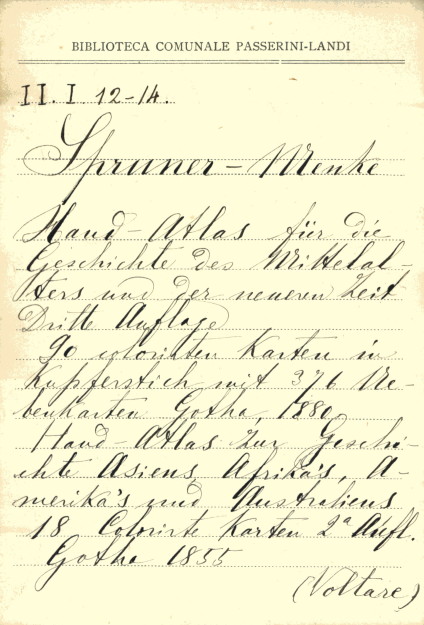 BIBLIOTECA COMUNALE PASSERINI-LANDI
II. I 12-14.
Spruner-Menke
Hand-Atlas für die
Geschichte des Mittelal-
ters und der neueren Zeit
Dritte Auflage
90 colorirten Karten in
Kupferstich mit 376 Ne-
benkarten Gotha, 1880
Hand-Atlas zur Geschi-
chte Asiens, Afrika's, A-
merika's und Australiens
18 Colorirte Karten 2ª Aufl.
Gotha 1855
(Voltare)